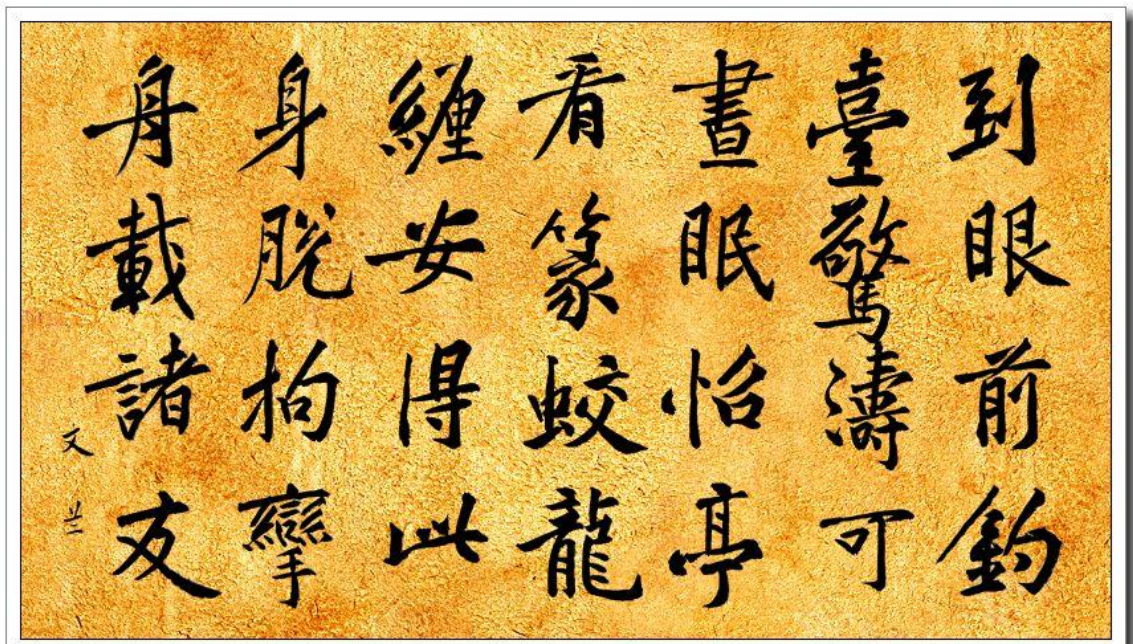 到眼前釣
臺驚濤可
晝眠怡亭
看篆蛟龍
纏安得此
身脫拘攣
舟載諸友
文兰